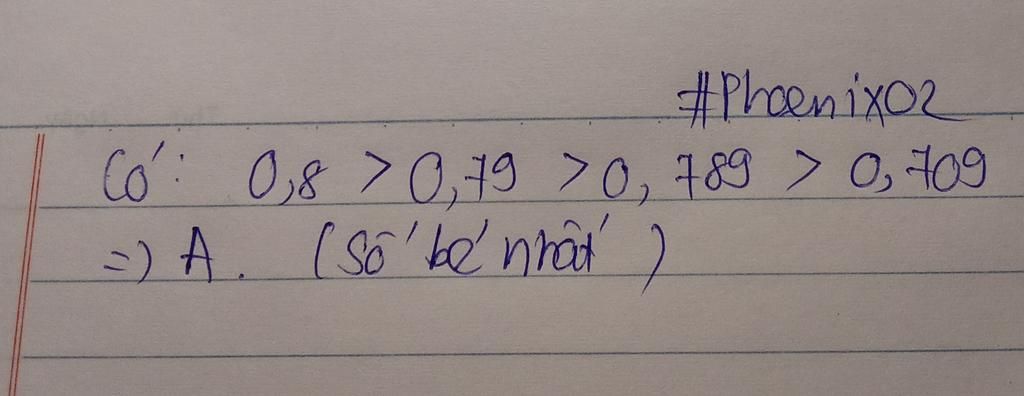 #Phoenix02
Có: 0,8 > 0,79 > 0,789 > 0,709
=) A. (Số bé nhất)